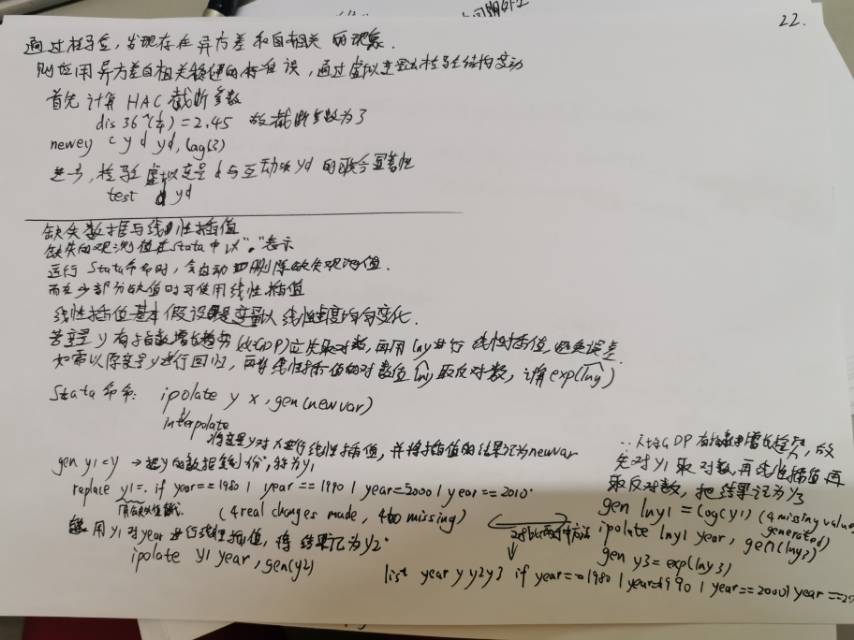 22.
通过检验,发现存在异方差和自相关的现象.
则应用异方差自相关稳健的标准误,通过虚拟变量法检验结构变动
首先计算HAC截断参数
dis 36^(1/4)=2.45 故截断参数为3
newey c y d yd, lag(3)
进一步,检验虚拟变量d与互动项yd的联合显著性
test d yd
缺失数据与线性插值
缺失的观测值在Stata中以"."表示
运行Stata命令时,会自动删除缺失观测值.
而在少部分缺值时可使用线性插值
线性插值基本假设是变量以线性速度均匀变化.
若变量y有指数增长趋势(如GDP)应先取对数,再用lny进行线性插值,避免误差.
如需以原变量y进行回归,再将线性插值的对数值lny取反对数,计算exp(lny)
Stata命令: ipolate y x, gen(newvar)
interpolate
将变量y对x进行线性插值,并将插值的结果记为newvar
gen y1=y →把y的数据复制一份,称为y1
replace y1=. if year==1980 | year==1990 | year==2000 | year==2010
(4 real changes made, 4 to missing)
用y1对year进行线性插值,将结果记为y2.
ipolate y1 year, gen(y2)
∵人均GDP有指数增长趋势,故
先对y1取对数,再线性插值,再
取反对数,把结果记为y3
gen lny1=log(y1) (4 missing values
generated)
ipolate lny1 year, gen(lny3)
gen y3=exp(lny3)
list year y y2 y3 if year==1980 | year==1990 | year==2000 | year==20